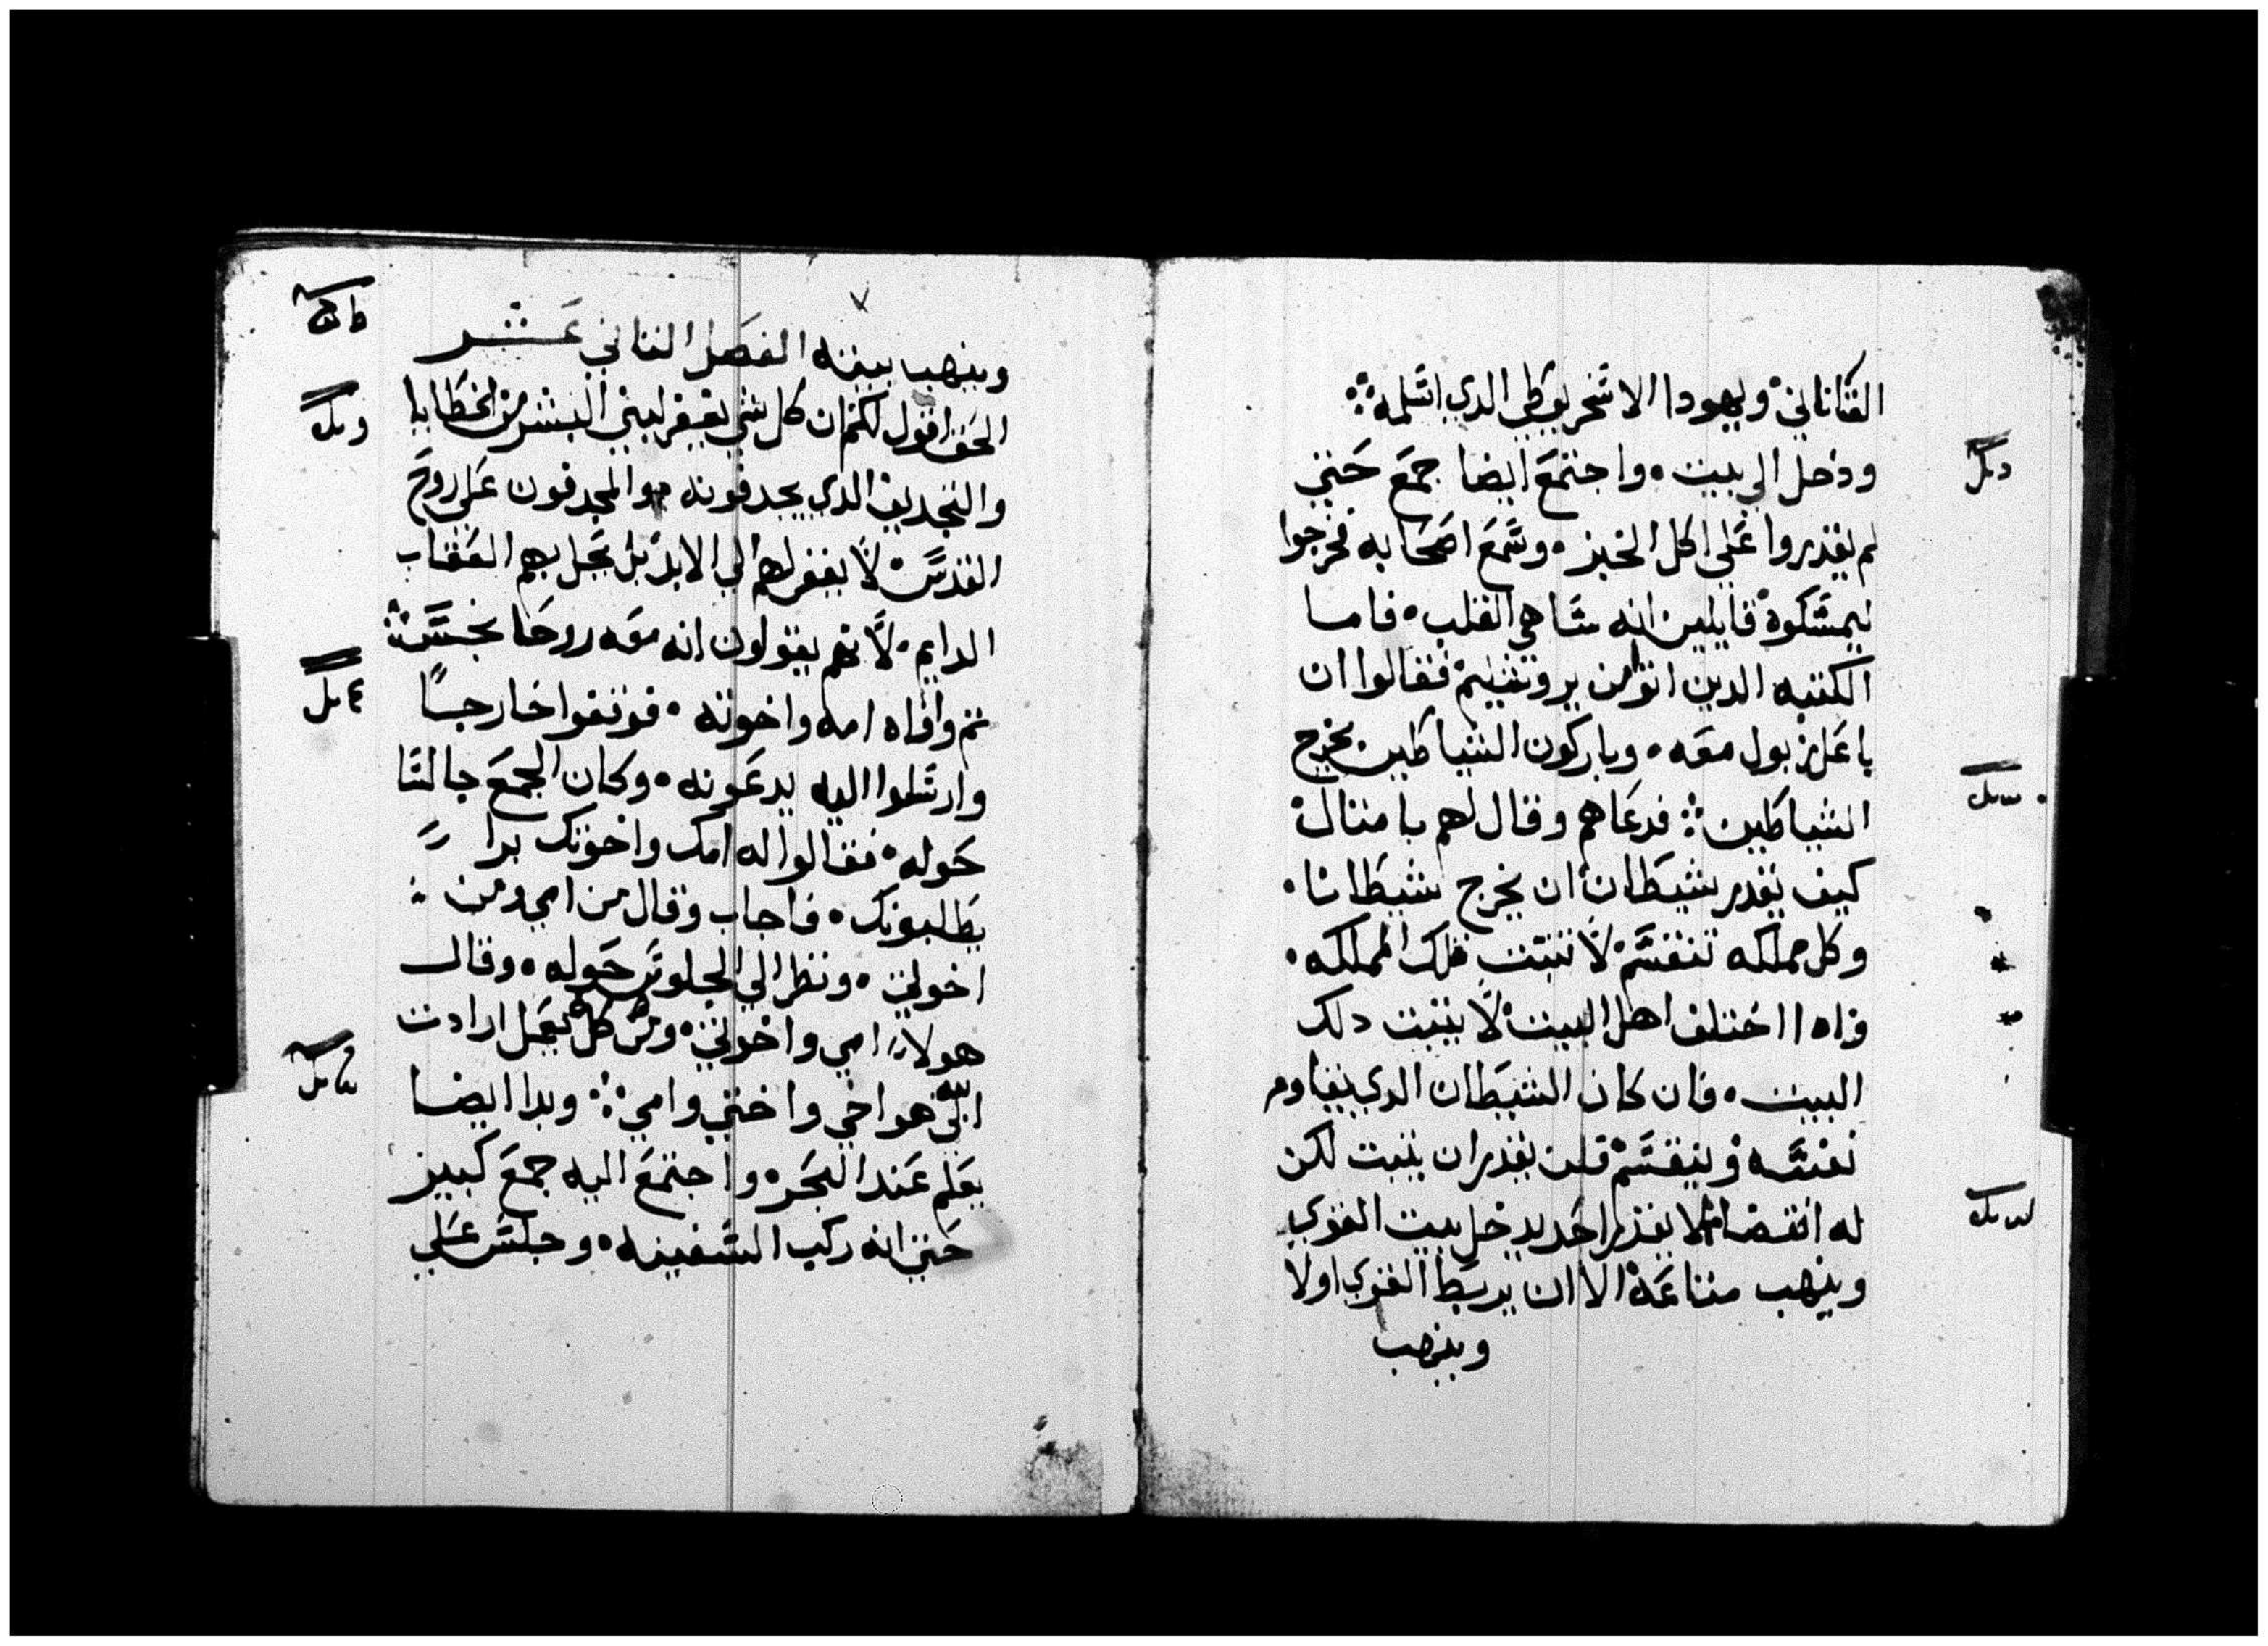 القناناني ويهودا الاسخريوطي الدي اسلمه
ودخل الي بيت واجتمع ايضا جمع حتي
لم يقدروا علي اكل الخبز وسمع اصحابه فخرجوا
ليمسكوه قايلين انه ساهي القلب فاما
الكتبه الدين اتوا من يروشليم فقالوا ان
باعلزبول معه وباركون الشياطين يخرج
الشياطين فدعاهم وقال لهم بامثال
كيف يقدر شيطان ان يخرج شيطانا
وكل مملكه تنقسم لا تثبت تلك المملكه
واذا اختلف اهل البيت لا يثبت دلك
البيت فان كان الشيطان الدي يقاوم
نفسه وينقسم فلن يقدر ان يثبت لكن
له انقضا لا يقدر احد يدخل بيت القوي
وينهب متاعه الا ان يربط القوي اولا
وينهب
وينهب بيته الفصل الثاني عشر
الحق اقول لكم ان كل شي يغفر لبني البشر من الخطايا
والتجديف الدي يجدفونه والمجدفون علي روح
القدس لا يغفر لهم الي الابد بل يحل بهم العقاب
الدايم لانهم يقولون انه معه روحا نجسا
ثم وافاه امه واخوته فوقفوا خارجا
وارسلوا اليه يدعونه وكان الجمع جالسا
حوله فقالوا له امك واخوتك برا
يطلبونك فاجاب وقال من امي ومن
اخوتي ونظر الي الجلوس حوله وقال
هولاء امي واخوتي ومن كل يعمل ارادت
الله هو اخي واختي وامي وبدا ايضا
يعلم عند البحر واجتمع اليه جمع كبير
حتي انه ركب السفينه وجلس علي